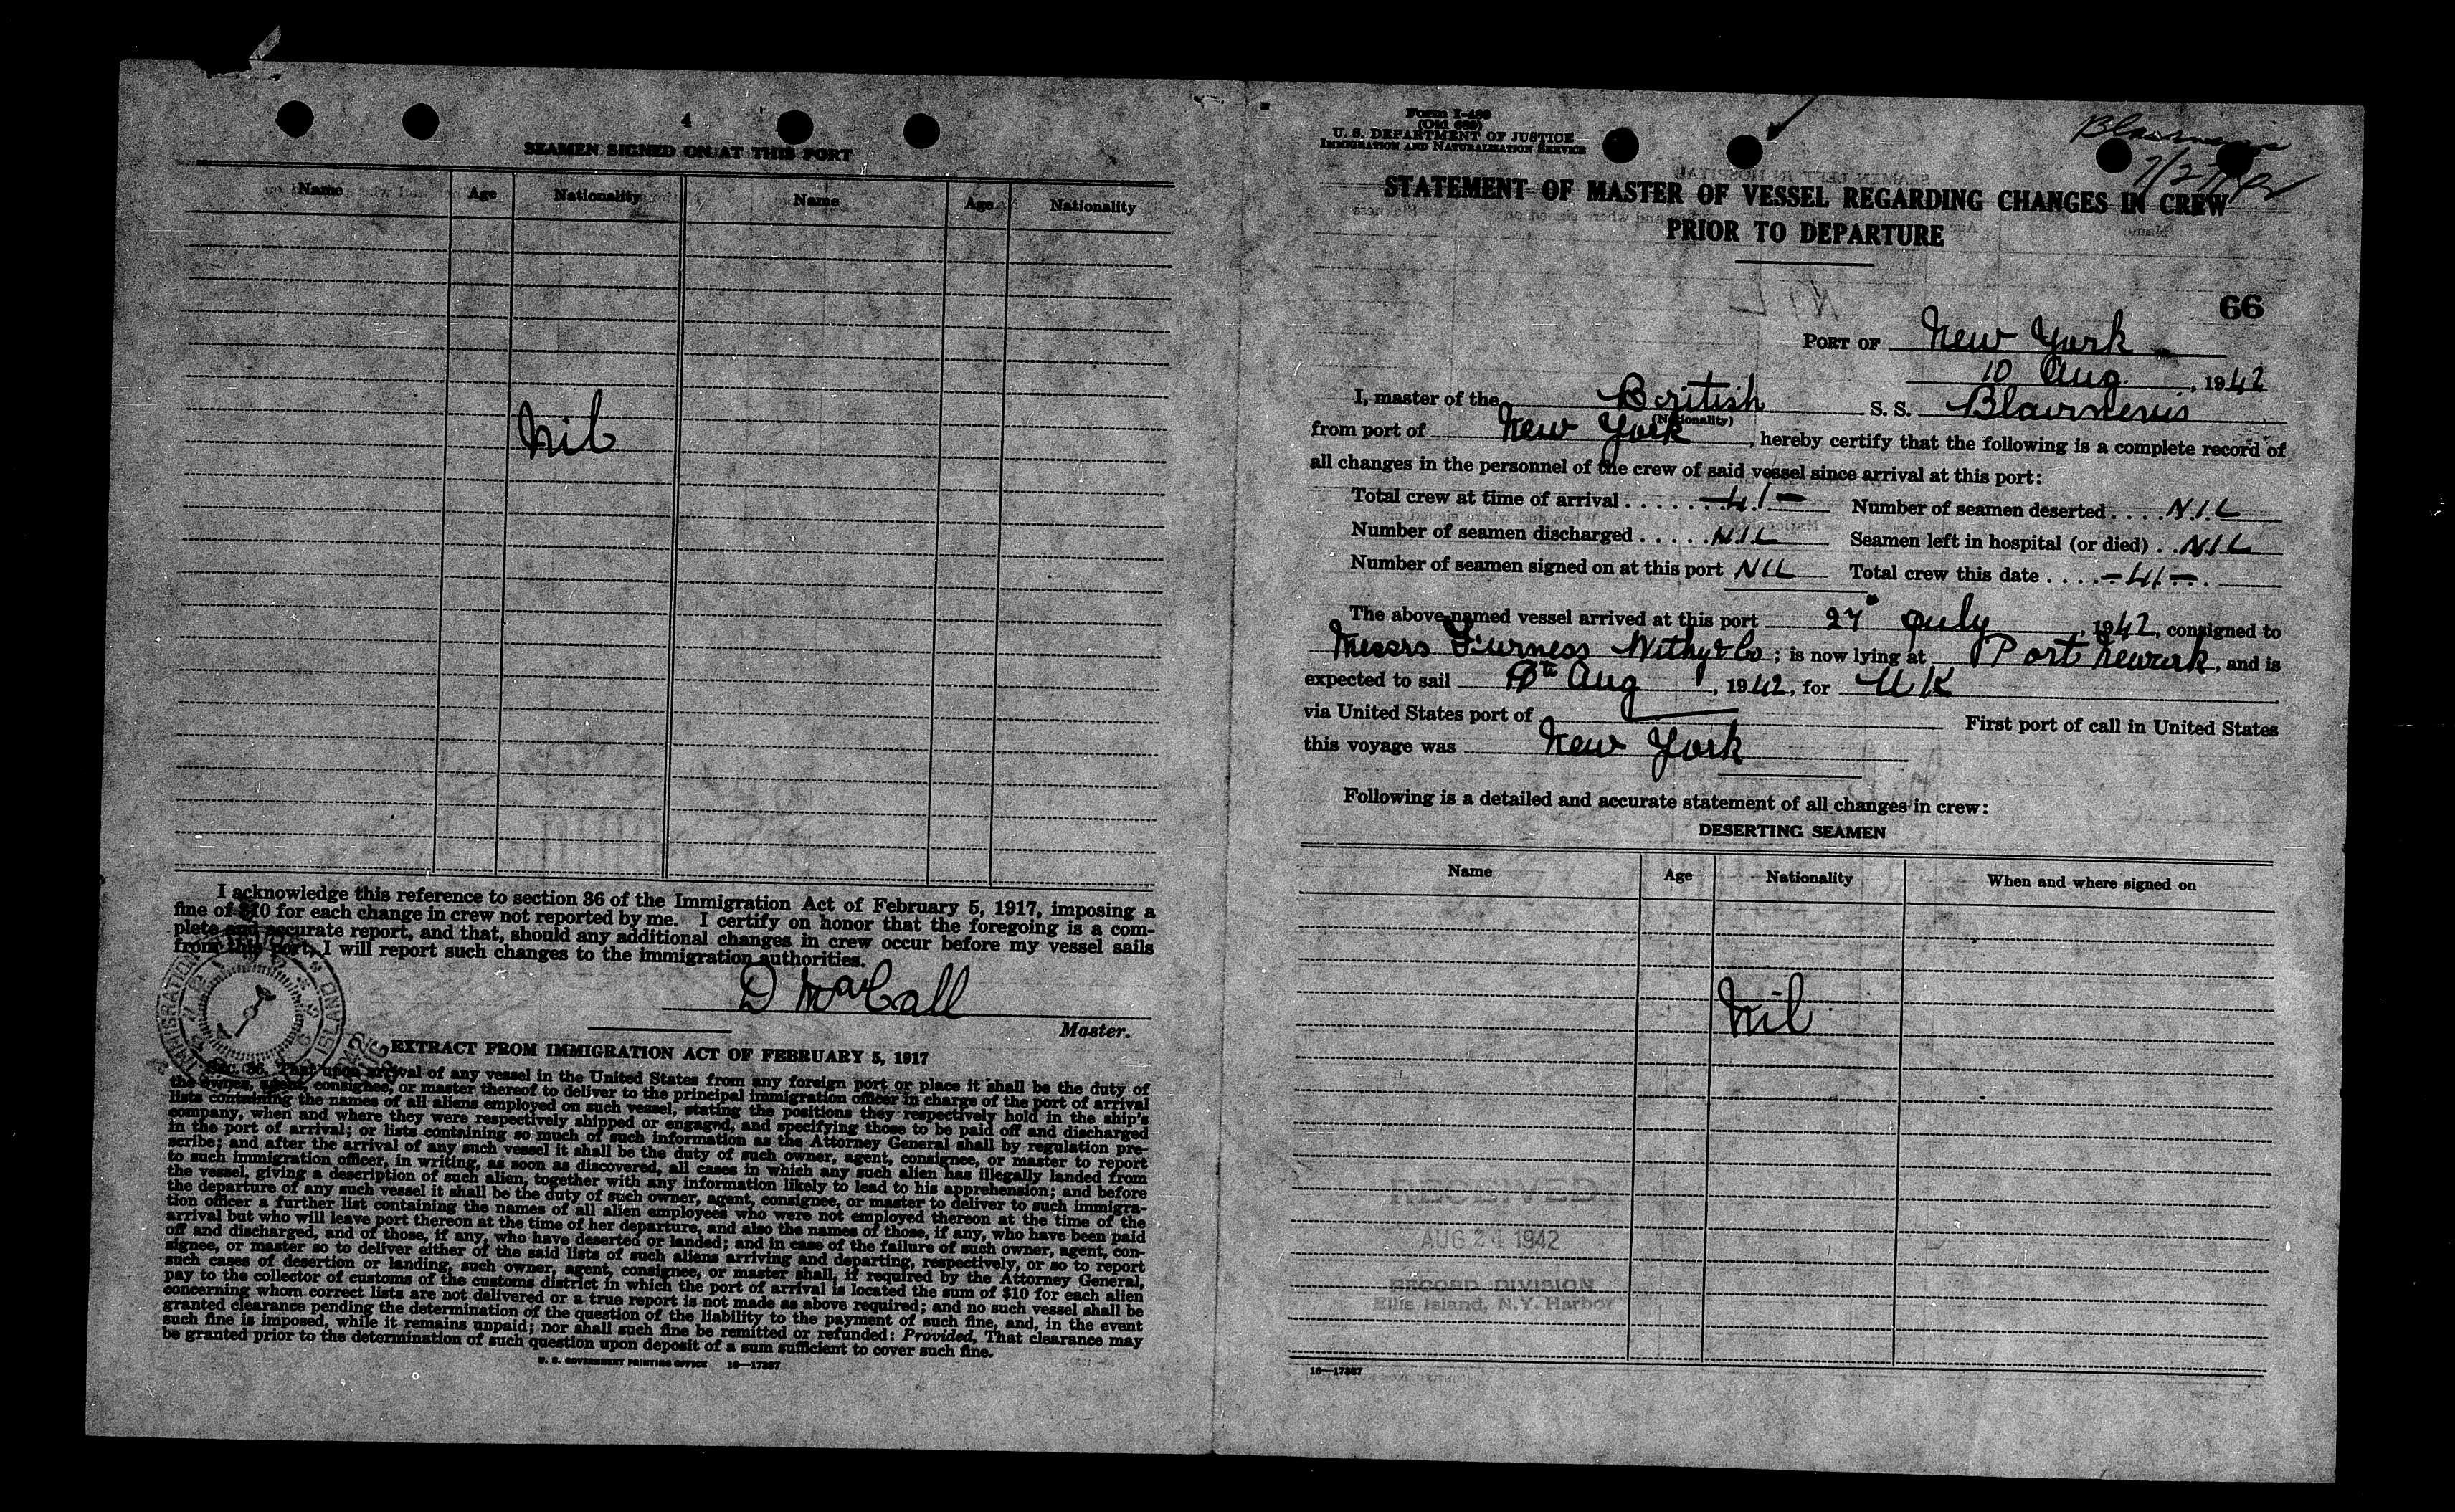 4
SEAMEN SIGNED ON AT THIS PORT
Name Age Nationality Name Age Nationality
Nil
I acknowledge this reference to section 36 of the Immigration Act of February 5, 1917, imposing a
fine of $10 for each change in crew not reported by me. I certify on honor that the foregoing is a com-
plete and accurate report, and that, should any additional changes in crew occur before my vessel sails
from this port, I will report such changes to the immigration authorities.
D MacCall
Master.
EXTRACT FROM IMMIGRATION ACT OF FEBRUARY 5, 1917
Sec. 36. That upon arrival of any vessel in the United States from any foreign port or place it shall be the duty of
the owner, agent, consignee, or master thereof to deliver to the principal immigration officer in charge of the port of arrival
lists containing the names of all aliens employed on such vessel, stating the positions they respectively hold in the ship's
company, when and where they were respectively shipped or engaged, and specifying those to be paid off and discharged
in the port of arrival; or lists containing so much of such information as the Attorney General shall by regulation pre-
scribe; and after the arrival of any such vessel it shall be the duty of such owner, agent, consignee, or master to report
to such immigration officer, in writing, as soon as discovered, all cases in which any such alien has illegally landed from
the vessel, giving a description of such alien, together with any information likely to lead to his apprehension; and before
the departure of any such vessel it shall be the duty of such owner, agent, consignee, or master to deliver to such immigra-
tion officer a further list containing the names of all alien employees who were not employed thereon at the time of the
arrival but who will leave port thereon at the time of her departure, and also the names of those, if any, who have been paid
off and discharged, and of those, if any, who have deserted or landed; and in case of the failure of such owner, agent, con-
signee, or master so to deliver either of the said lists of such aliens arriving and departing, respectively, or so to report
such cases of desertion or landing, such owner, agent, consignee, or master shall, if required by the Attorney General,
pay to the collector of customs of the customs district in which the port of arrival is located the sum of $10 for each alien
concerning whom correct lists are not delivered or a true report is not made as above required; and no such vessel shall be
granted clearance pending the determination of the question of the liability to the payment of such fine, and, in the event
such fine is imposed, while it remains unpaid; nor shall such fine be remitted or refunded: Provided, That clearance may
be granted prior to the determination of such question upon deposit of a sum sufficient to cover such fine.
U. S. GOVERNMENT PRINTING OFFICE 16—17387
Form I-489
U. S. DEPARTMENT OF JUSTICE
IMMIGRATION AND NATURALIZATION SERVICE
Blairnevis
7/27/42
STATEMENT OF MASTER OF VESSEL REGARDING CHANGES IN CREW
PRIOR TO DEPARTURE
66
PORT OF New York
10 Aug., 1942
I, master of the British S. S. Blairnevis
(Nationality)
from port of New York, hereby certify that the following is a complete record of
all changes in the personnel of the crew of said vessel since arrival at this port:
Total crew at time of arrival . . . . . . . —41— Number of seamen deserted . . . . NIL
Number of seamen discharged . . . . . NIL Seamen left in hospital (or died) . . NIL
Number of seamen signed on at this port NIL Total crew this date . . . . —41—
The above-named vessel arrived at this port 27 July, 1942, consigned to
Messrs Furness Withy & Co; is now lying at Port Newark, and is
expected to sail Aug, 1942, for UK
via United States port of — First port of call in United States
this voyage was New York
Following is a detailed and accurate statement of all changes in crew:
DESERTING SEAMEN
Name Age Nationality When and where signed on
Nil
RECEIVED
AUG 24 1942
RECORD DIVISION
Ellis Island, N.Y. Harbor
16—17387